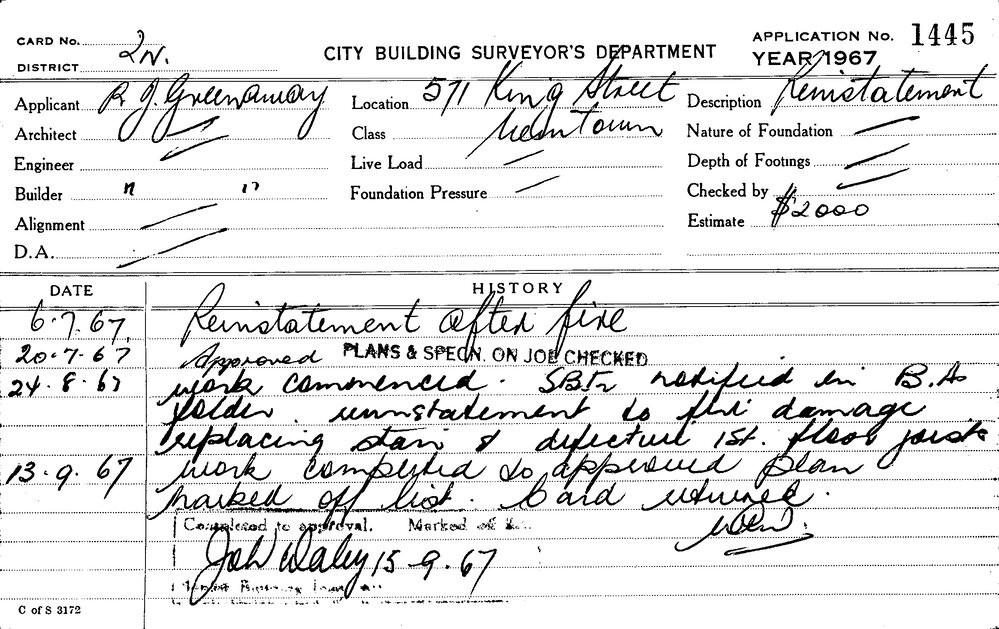 CARD No. 2N.
DISTRICT
CITY BUILDING SURVEYOR'S DEPARTMENT
APPLICATION No. 1445
YEAR 1967
Applicant R J. Greenaway
Location 571 King Street
Newtown
Description Reinstatement
Architect
Class
Nature of Foundation
Engineer
Live Load
Depth of Footings
Builder " "
Foundation Pressure
Checked by
Alignment
Estimate $2000
D.A.
DATE HISTORY
6.7.67. Reinstatement after fire
20.7.67 Approved PLANS & SPECN. ON JOB CHECKED
24.8.67 work commenced. notified in B.A
folder. reinstatement to fire damage
replacing stair & defective 1st. floor joists
13.9.67 work completed to approved plan
marked off list. Card returned.
Completed to approval. Marked off
Daley 15-9-67
C of S 3172